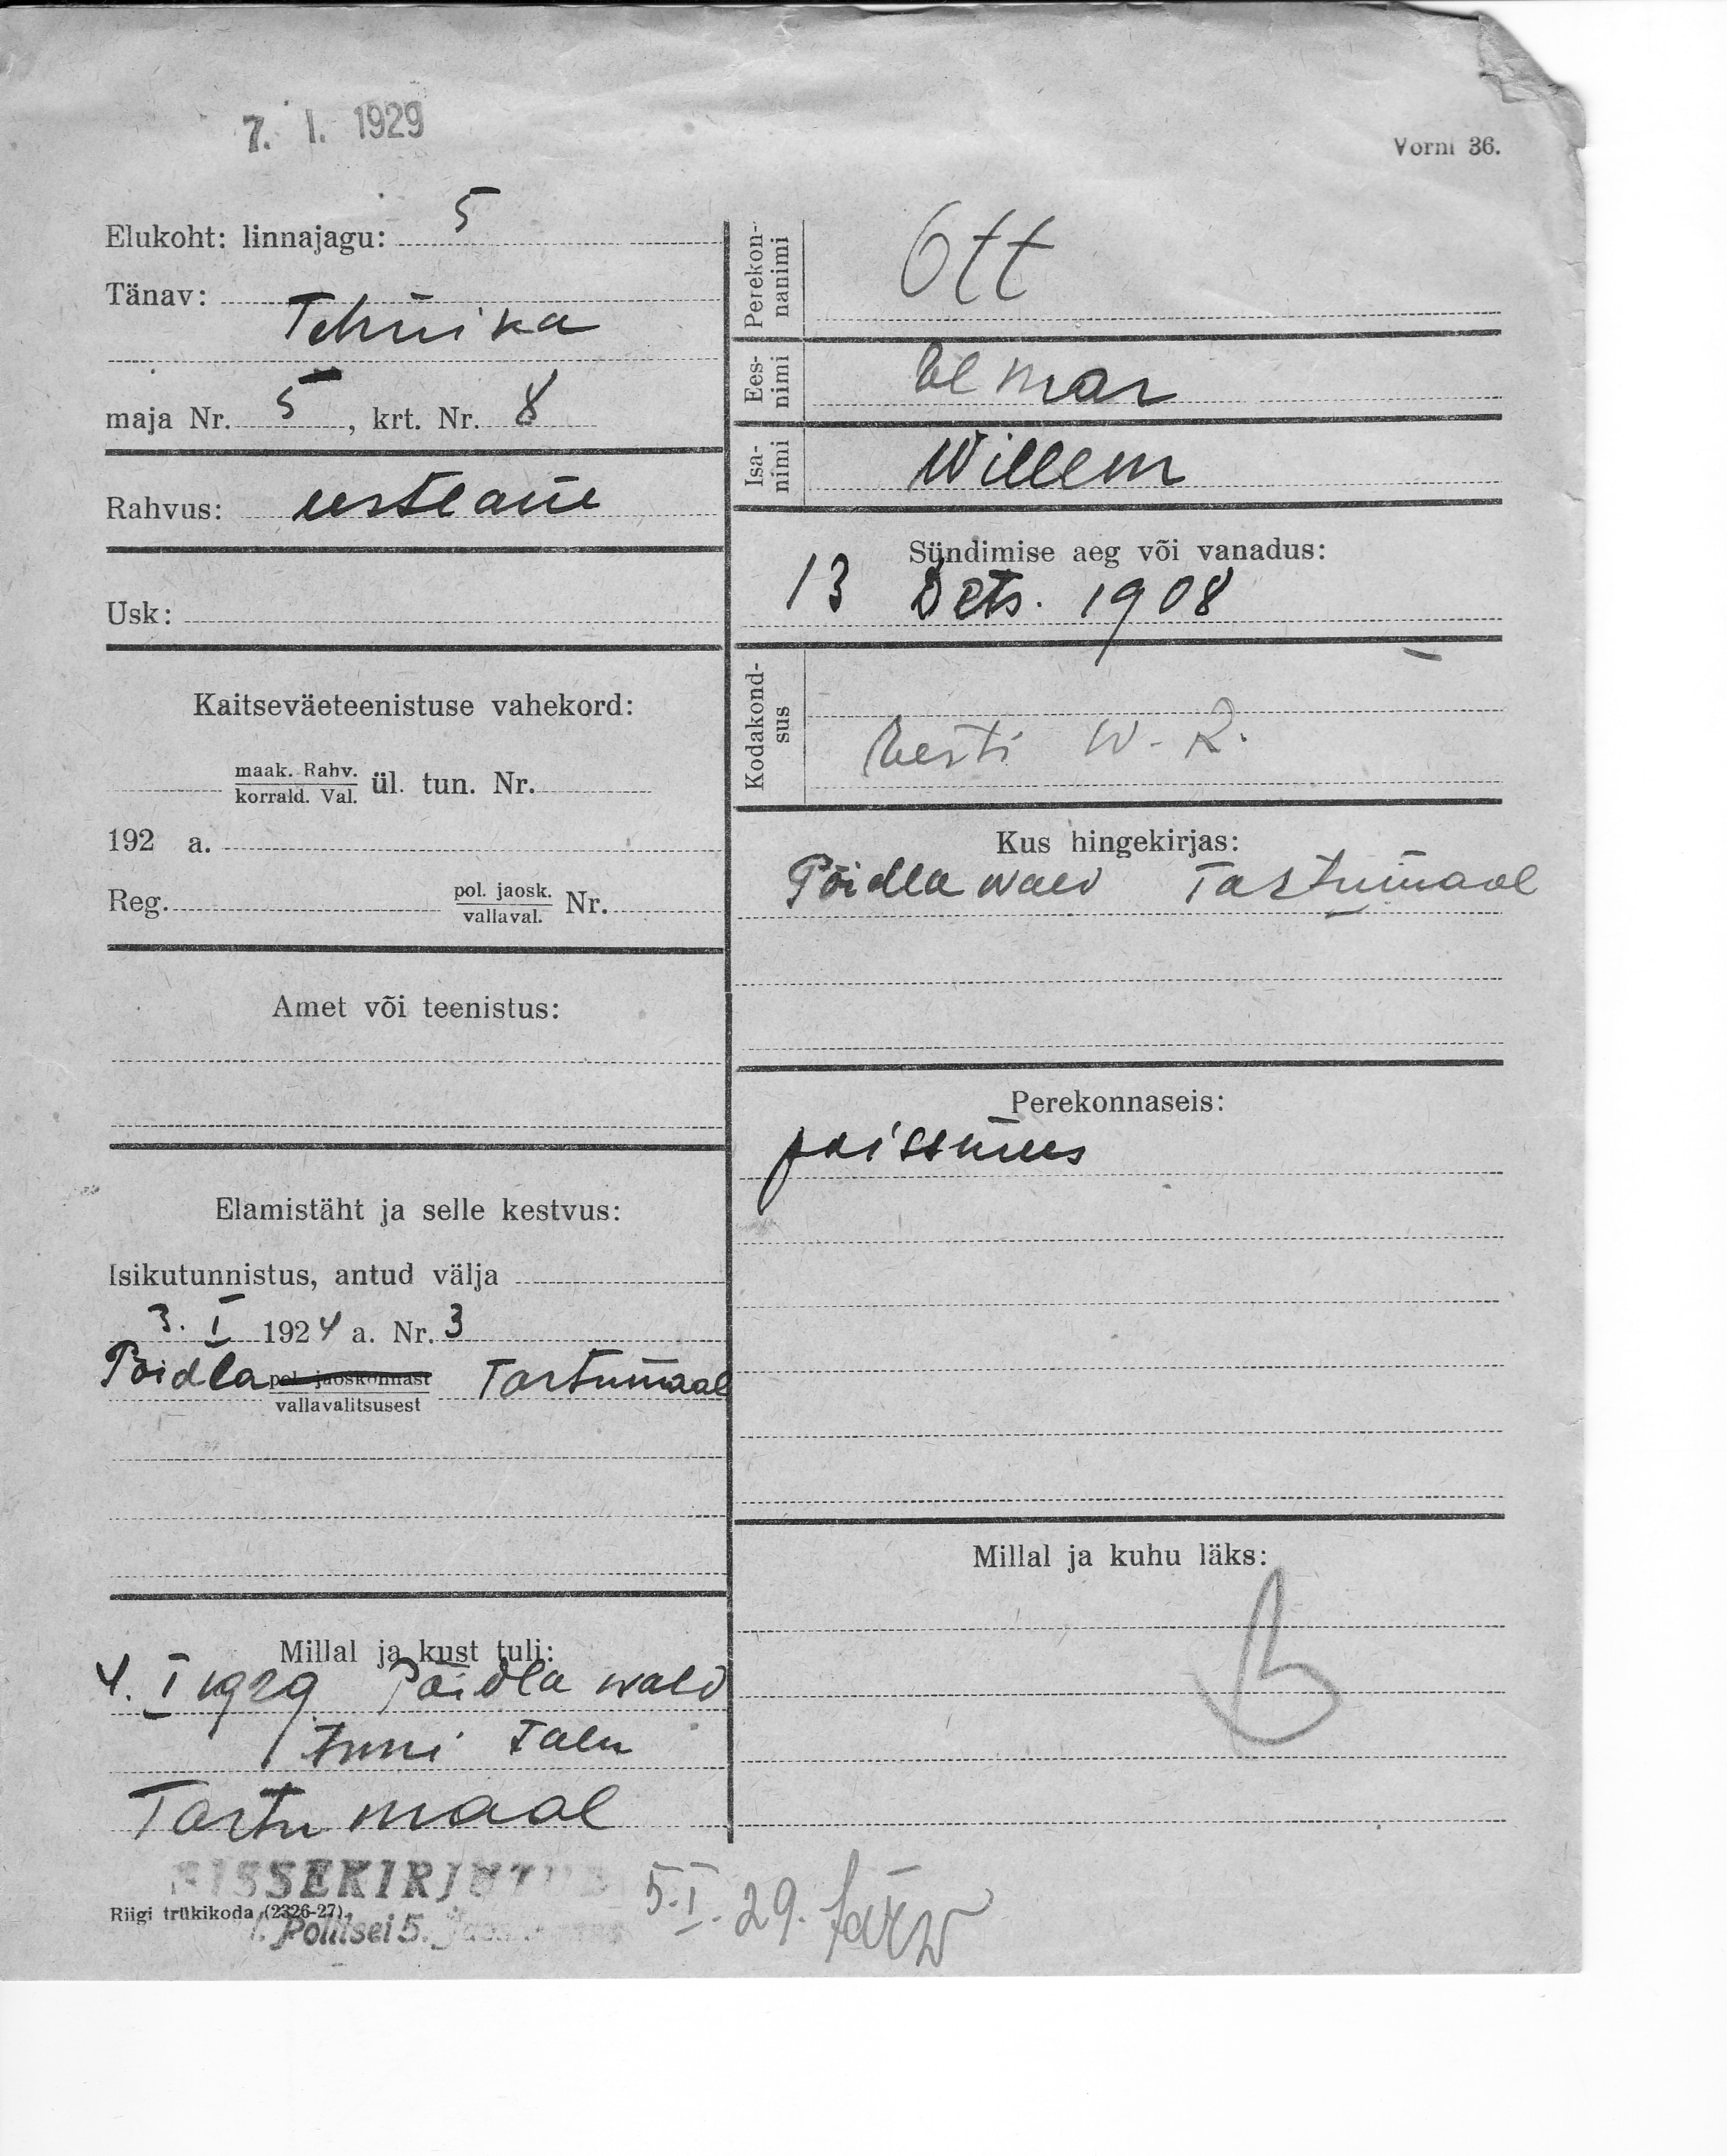 7. I. 1929
Vorm 36.
Elukoht: linnajagu: 5
Tänav:
Tehnika
maja Nr. 5, krt. Nr. 8
Rahvus: eestlane
Usk:
Kaitseväeteenistuse vahekord:
maak. Rahv.
korrald. Val. ül. tun. Nr.
192 a.
Reg. pol. jaosk.
vallaval. Nr.
Amet või teenistus:
Elamistäht ja selle kestvus:
Isikutunnistus, antud välja
3. I 1924 a. Nr. 3
Põidla pol. jaoskonnast Tartumaal
vallavalitsusest
Millal ja kust tuli:
4. I 1929 Põidla wald
talu
Tartumaal
Perekon-
nanimi Ott
Ees-
nimi Elmar
Isa-
nimi Willem
Sündimise aeg või vanadus:
13 Dets. 1908
Kodakond-
sus
Eesti W. R.
Kus hingekirjas:
Põidla wald Tartumaal
Perekonnaseis:
poissmees
Millal ja kuhu läks:
SISSEKIRJUTUD
Riigi trükikoda (2326-27).
Politsei 5.
5. I. 29.